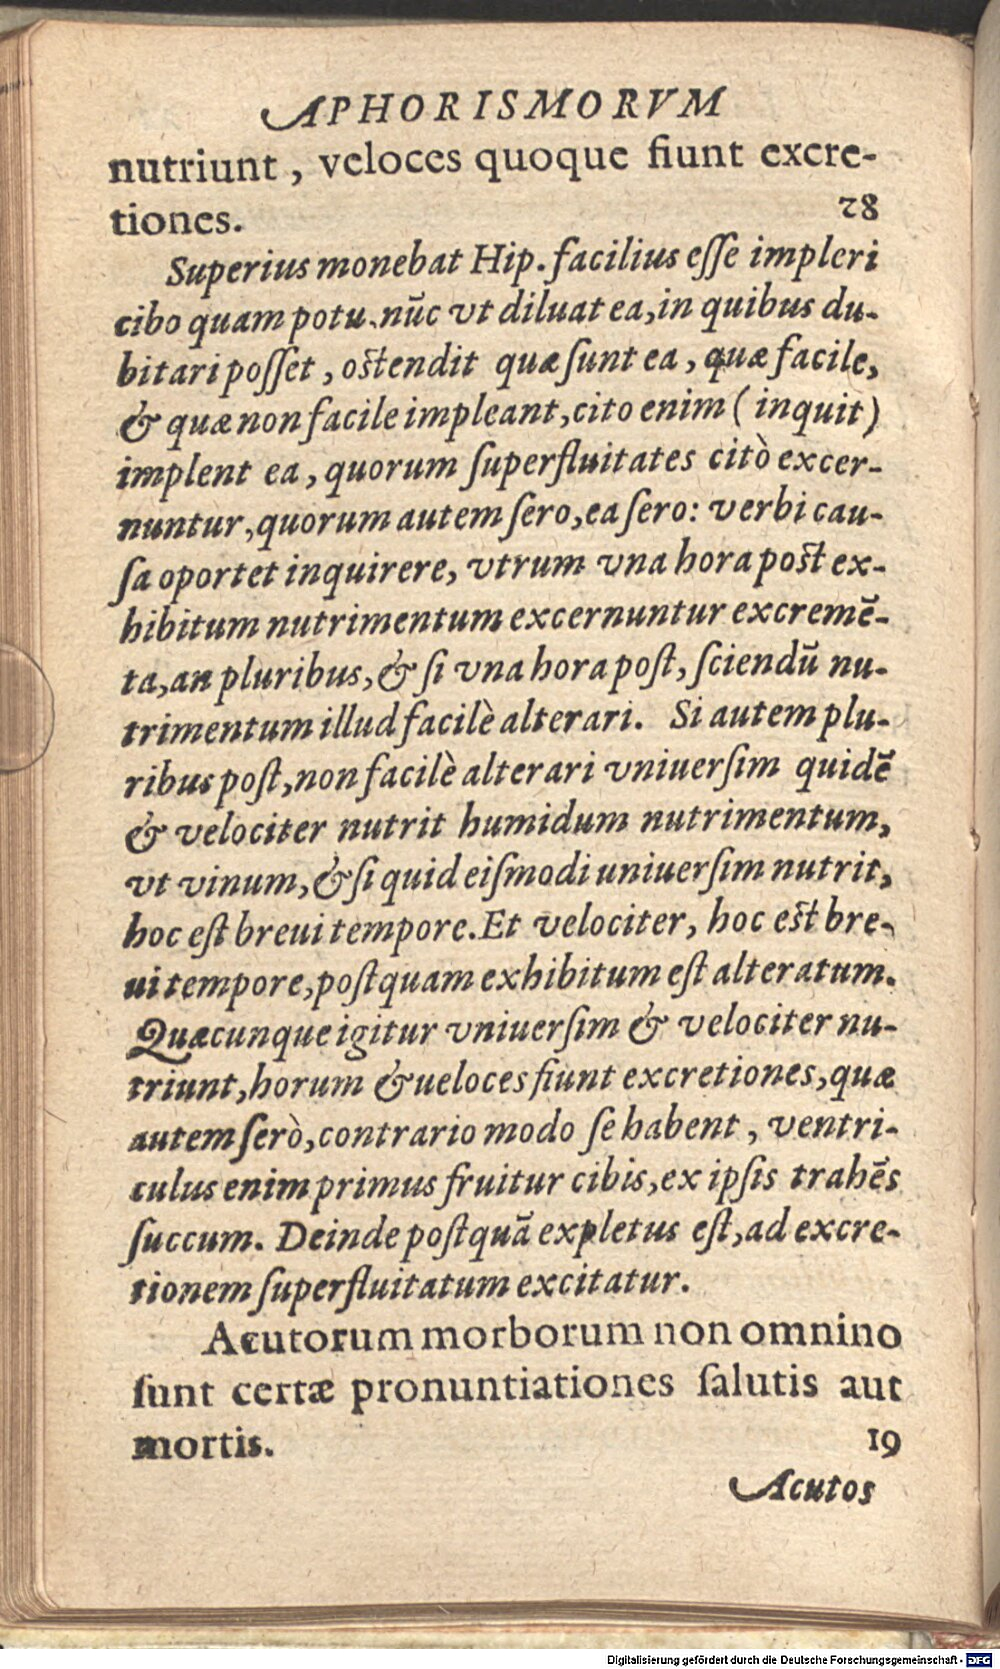 APHORISMORVM
nutriunt, veloces quoque fiunt excre-
tiones. 28
Superius monebat Hip. facilius eſſe impleri
cibo quam potu. nūc vt diluat ea, in quibus du-
bitari poſſet, oſtendit quæ ſunt ea, quæ facile,
& quæ non facile impleant, cito enim (inquit)
implent ea, quorum ſuperfluitates citò excer-
nuntur, quorum autem ſero, ea ſero: verbi cau-
ſa oportet inquirere, vtrum vna hora poſt ex-
hibitum nutrimentum excernuntur excremē-
ta, an pluribus, & ſi vna hora poſt, ſciendū nu-
trimentum illud facilè alterari. Si autem plu-
ribus poſt, non facilè alterari vniuerſim quidē
& velociter nutrit humidum nutrimentum,
vt vinum, & ſi quid eiſmodi uniuerſim nutrit,
hoc eſt breui tempore. Et velociter, hoc eſt bre-
ui tempore, poſtquam exhibitum eſt alteratum.
Quæcunque igitur vniuerſim & velociter nu-
triunt, horum & ueloces fiunt excretiones, quæ
autem ſerò, contrario modo ſe habent, ventri-
culus enim primus fruitur cibis, ex ipſis trahēs
ſuccum. Deinde poſtquā expletus eſt, ad excre-
tionem ſuperfluitatum excitatur.
Acutorum morborum non omnino
ſunt certæ pronuntiationes ſalutis aut
mortis. 19
Acutos
Digitalisierung gefördert durch die Deutsche Forschungsgemeinschaft - DFG